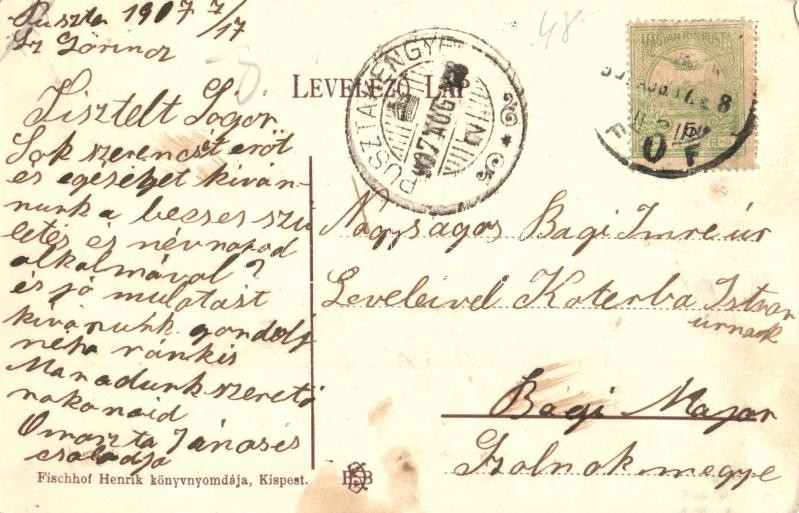 Puszta 1907 7/17
Sz Lőrincz
48
LEVELEZŐ LAP
MAGYAR KIR. POSTA
PUSZTATENGYEL
907 AUG 18
Tisztelt Sógor
Sok szerencsét erőt
és egéséget kíván-
nunk a becses szü
letés és névnapod
alkalmával?
és jó mulatást
kívánunk gondolj
néha ránkis
Maradunk szerető
rokonaid
Omaszta Jánosés
családja
Nagyságos Bagi Imre úr
Leveleivel Koterba Istvan
úrnak
Bagi Major
Szolnok megye
Fischhof Henrik könyvnyomdája, Kispest.